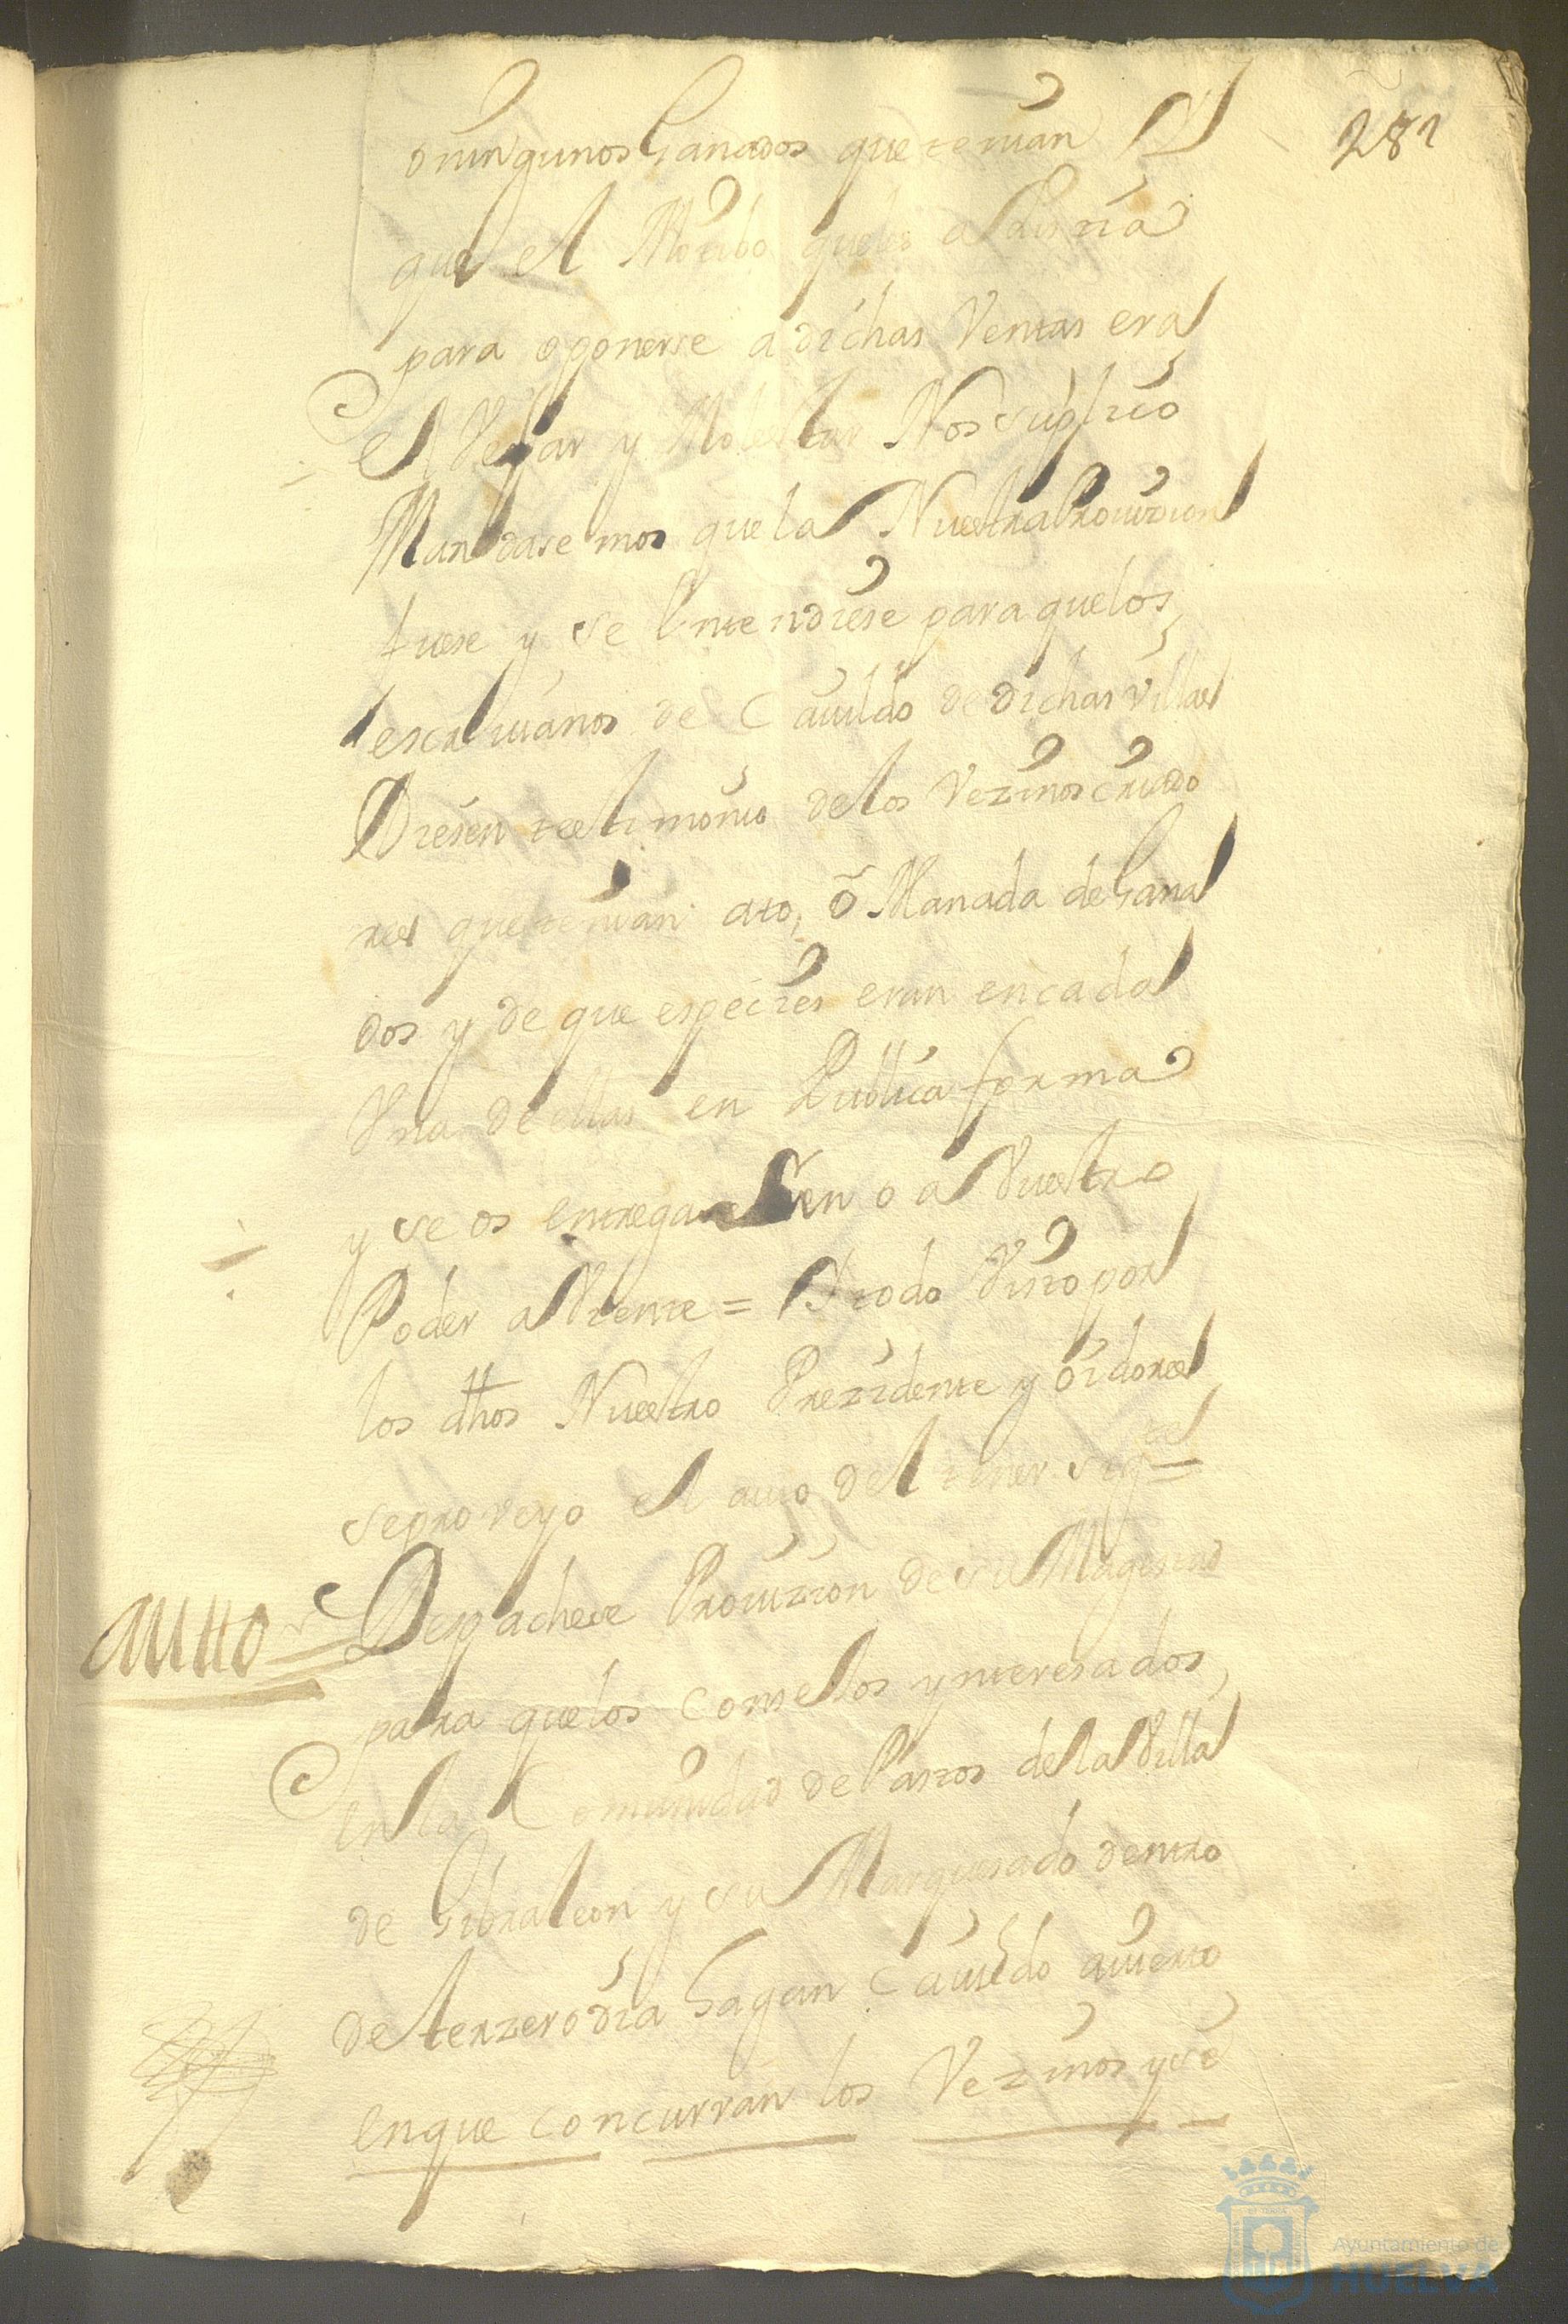 282
o ningunos Ganados que tenian Y
que el Motibo que les asistia
para oponerse a dichas Ventas era
el Vejar y Molestar Nos suplico
Mandasemos que la Nuestra Provizion
fuese y se entendiese para que los
escrivanos de Cavildo de dichas villas
Diesen testimonio de los Vezinos criado
res que tenian ato, o Manada de Gana
dos y de que especies eran en cada
Una de ellas en Publica forma
y se os entregasen o a Vuestro
Poder abiente = Y todo Visto por
los dhos Nuestro Prezidente y oidores
se proveyo el auto del tenor sigte
Autto Despachese Provizion de su Magestad
para que los Consejos ynteresados
en la Comunidad de Pastos de la Villa
de Gibraleon y su Marquesado dentro
de terzero dia hagan Cavildo avierto
en que concurran los Vezinos y se
Ayuntamiento de
HUELVA